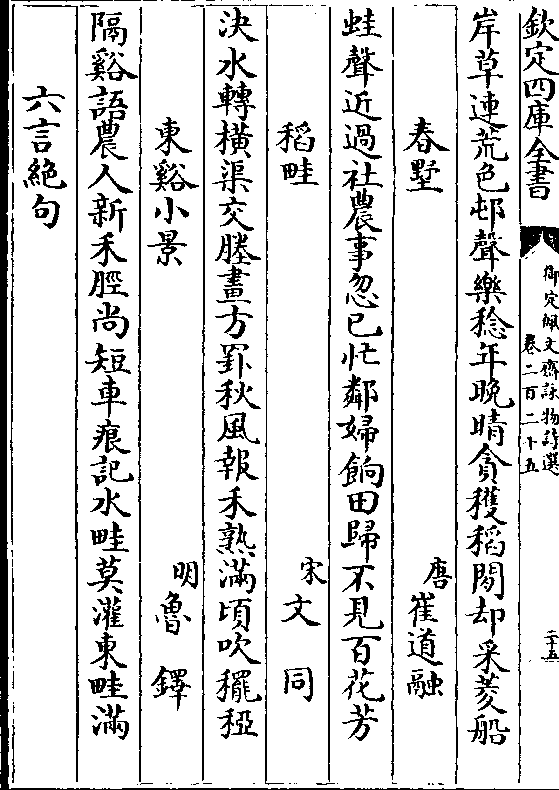 欽定四庫全書
御定佩文齋詠物詩選
卷二百二十五
二十五
岸草連荒色邨聲樂稔年晚晴貪穫稻閒却采菱船
春墅
唐崔道融
蛙聲近過社農事忽已忙鄰婦餉田歸不見百花芳
稻畦
宋文同
決水轉橫渠交塍畫方罫秋風報禾熟滿頃吹䆉稏
東谿小景
明魯鐸
隔谿語農人新禾脛尚短車痕記水畦莫灌東畦滿
六言絕句